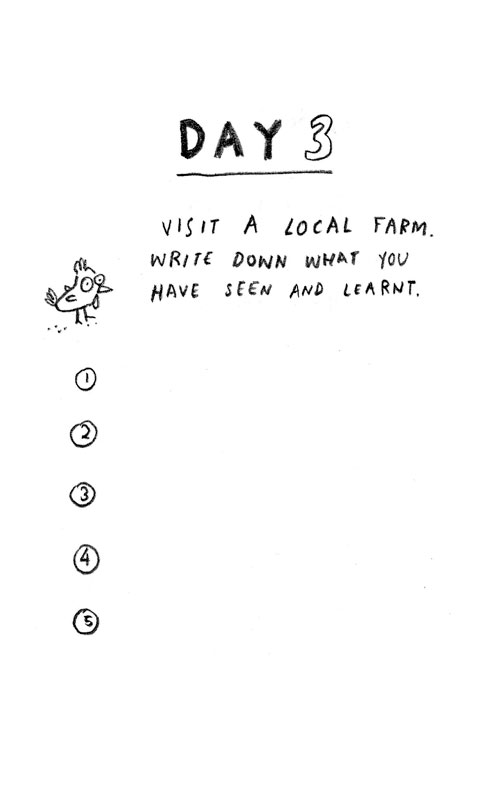 DAY 3
VISIT A LOCAL FARM.
WRITE DOWN WHAT YOU
HAVE SEEN AND LEARNT.
1
2
3
4
5